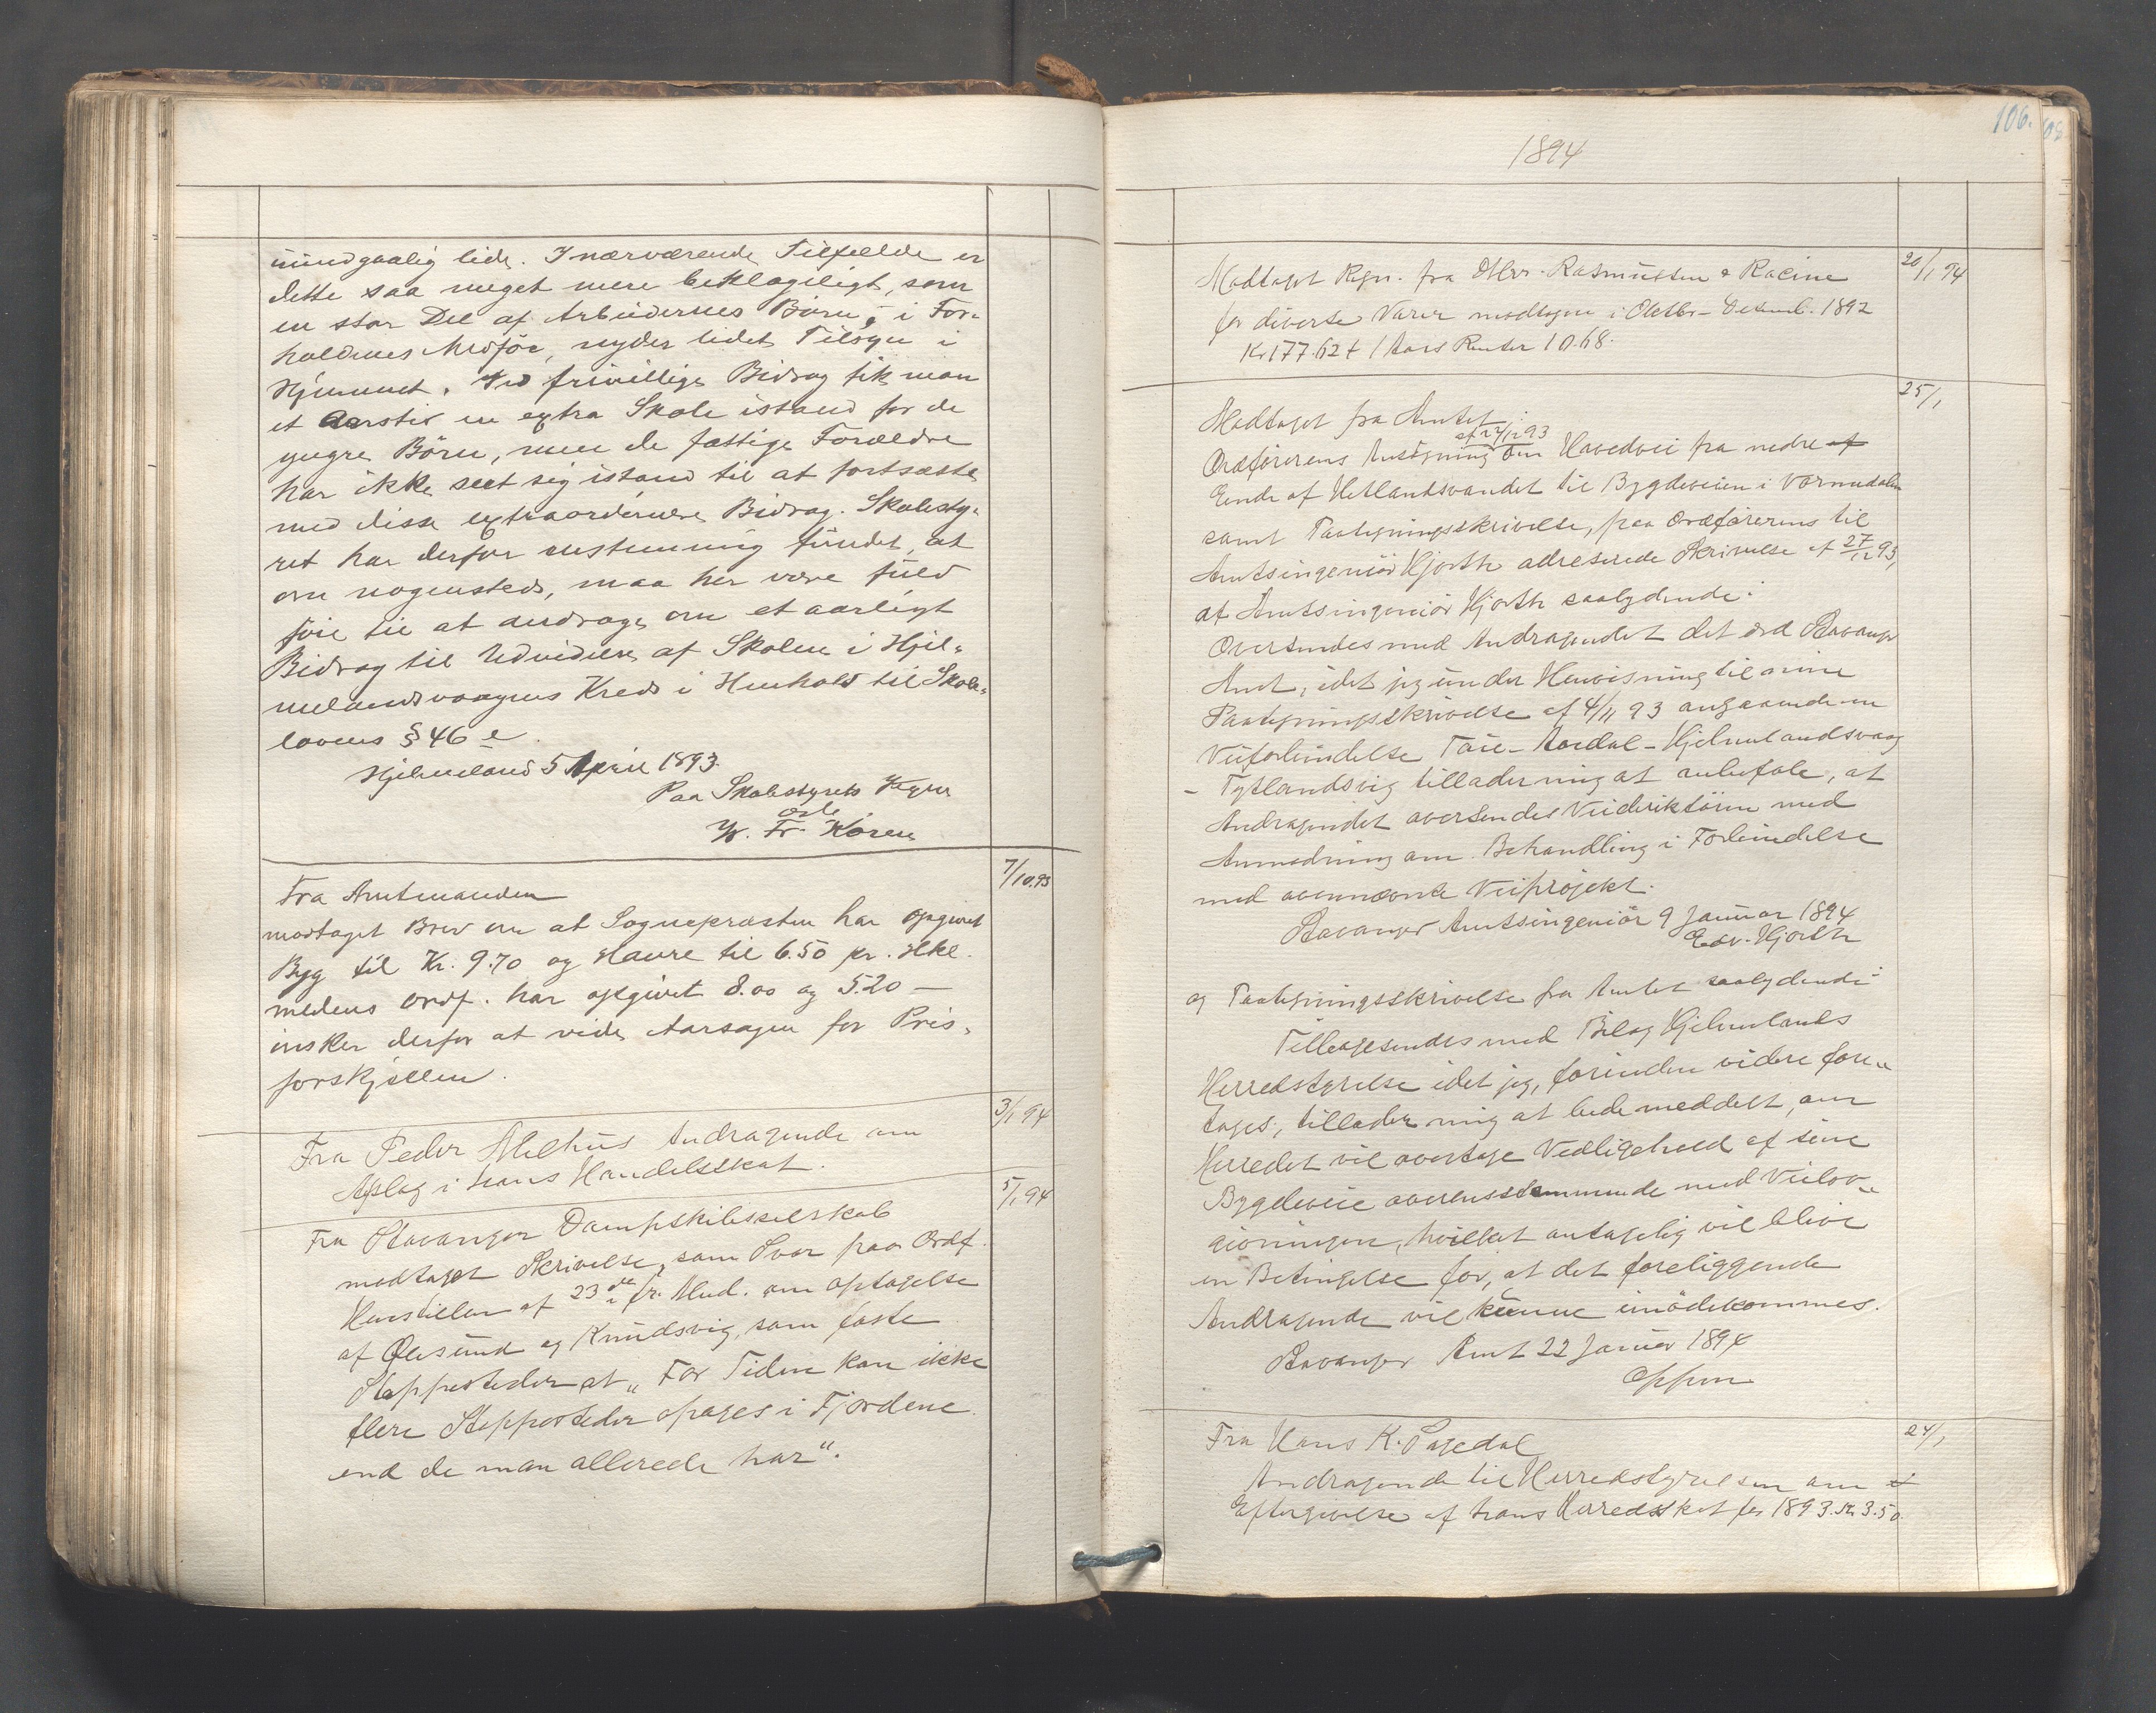 uundgaalig lide. I nærværende Tilfælde er
dette saa meget mere beklageligt, som
en stor Del af Arbeidernes Børn, i For-
holdenes Medfør, nyder lidet Tilsyn i
Hjemmet. Ved frivillige Bidrag fik man
et Aarstid en extra Skole istand for de
yngre Børn, men de fattige Forældre
har ikke seet sig istand til at fortsætte
med disse extraordinære Bidrag. Skolesty-
ret har derfor enstemmig fundet, at
om nogensteds, maa her være fuld
føie til at andrage om et aarligt
Bidrag til Udvidelse af Skolen i Hjel-
melandsvaagens Kreds i Henhold til Skole-
lovens § 46 e.
Hjelmeland 5 April 1893.
Paa Skolestyrets Vegne
W. Fr. Koren
7/10.93
Fra Amtmanden
modtaget Brev om at Sognepræsten har opgivet
Byg til Kr. 9.70 og Havre til 6.50 pr. Hkl.
medens Ordf. har opgivet 8.00 og 5.20 —
ønsker derfor at vide Aarsagen for Pris-
forskjellen.
3/1 94
Fra Peder Melhus Andragende om
Afslag i hans Handelsskat.
5/1 94
Fra Stavanger Dampskibsselskab
modtaget Skrivelse, som Svar paa Ordf.
Henstillen af 23de f. Mnd. om optagelse
af Øresund og Knudsvig, som faste
Stoppesteder at „For Tiden kan ikke
flere Stoppesteder opages i Fjordene
end de man allerede har“.
106.
1894
20/1 94
Modtaget Regn. fra Rasmussen & Racine
for diverse Varer modtagne i Octbr - Desemb. 1892
Kr 177.62 + 1 Aars Renter 10.68.
25/1
Modtaget fra Amtet:
af 27/12 93
Ordførerens Ansøgning om Hovedvei fra nedre af
Ende af Hetlandsvandet til Bygdeveien i Vormedalen
samt Paategningsskrivelse, paa Ordførerens til
Amtsingeniør Hjorth adreserede Skrivelse af 27/12 93,
af Amtsingeniør Hjorth saalydende:
Oversendes med Andragendet det ord Stavanger
Amt, idet jeg under Henvisning til min
Paategningsskrivelse af 4/11 93 angaaende en
Veiforbindelse Tøie - Aardal - Hjelmelandsvaag
- Tytlandsvig tillader mig at anbefale, at
Andragendet oversendes Veidirektøren med
Anmodning om Behandling i Forbindelse
med ovennævnte Veiprojekt.
Stavanger Amtsingeniør 9 Januar 1894
Edv. Hjorth
og Paategningsskrivelse fra Amtet saalydende:
Tilbagesendes med Bilag Hjelmelands
Herredsstyrelse idet jeg, forinden videre fore-
tages, tillader mig at bede meddelt, om
Herredet vil overtage Vedligehold af sine
Bygdeveie overensstemmende med Veilov-
givningen, hvilket antagelig vil blive
en Betingelse for, at det foreliggende
Andragende vil kunne imødekommes.
Stavanger Amt 22 Januar 1894
Oppen
24/1
Fra Hans K. Pagedal
Andragende til Herredsstyrelsen om
Eftergivelse af hans Herredsskat for 1893. Kr 3.50.